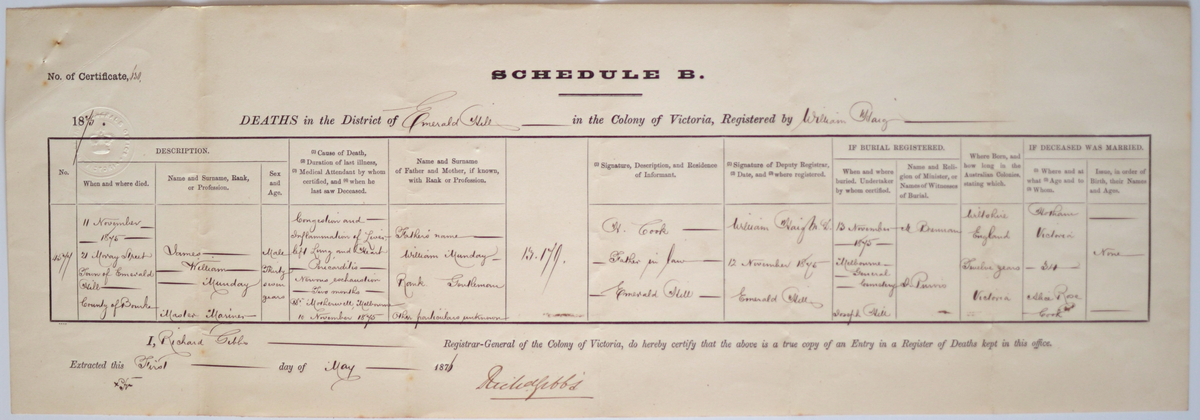 No. of Certificate,
SCHEDULE B.
1875. DEATHS in the District of Emerald Hill in the Colony of Victoria, Registered by William Haig
DESCRIPTION.
IF BURIAL REGISTERED.
IF DECEASED WAS MARRIED.
No.
When and where died.
Name and Surname, Rank,
or Profession.
Sex
and
Age.
(1) Cause of Death,
(2) Duration of last illness,
(3) Medical Attendant by whom
certified, and (4) when he
last saw Deceased.
Name and Surname
of Father and Mother, if known,
with Rank or Profession.
Signature, Description, and Residence
of Informant.
(1) Signature of Deputy Registrar,
(2) Date, and (3) where registered.
When and where
buried. Undertaker
by whom certified.
Name and Reli-
gion of Minister, or
Names of Witnesses
of Burial.
Where Born, and
how long in the
Australian Colonies,
stating which.
(1) Where and at
what (2) Age and to
(3) Whom.
Issue, in order of
Birth, their Names
and Ages.
11 November
1875
21 Moray Street
Town of Emerald
Hill
County of Bourke
James
William
Munday
Master Mariner
Male
Thirty
seven
years
Congestion and
Inflammation of Liver
left Lung, and Heart
Pericarditis
Nervous exhaustion
Two months
Dr Motherwell Melbourne
10 November 1875
Father's name
William Munday
Rank Gentleman
Other particulars unknown
13.179.
H. Cook
Father in law
Emerald Hill
William Haig
12 November 1875
Emerald Hill
13 November
1875
Melbourne
General
Cemetery
Joseph Hill
Wiltshire
England
Twelve years
Victoria
Hotham
Victoria
Rose
Cook
None
I, Richard Gibbs Registrar-General of the Colony of Victoria, do hereby certify that the above is a true copy of an Entry in a Register of Deaths kept in this office.
Extracted this First day of May 1876
Richd Gibbs